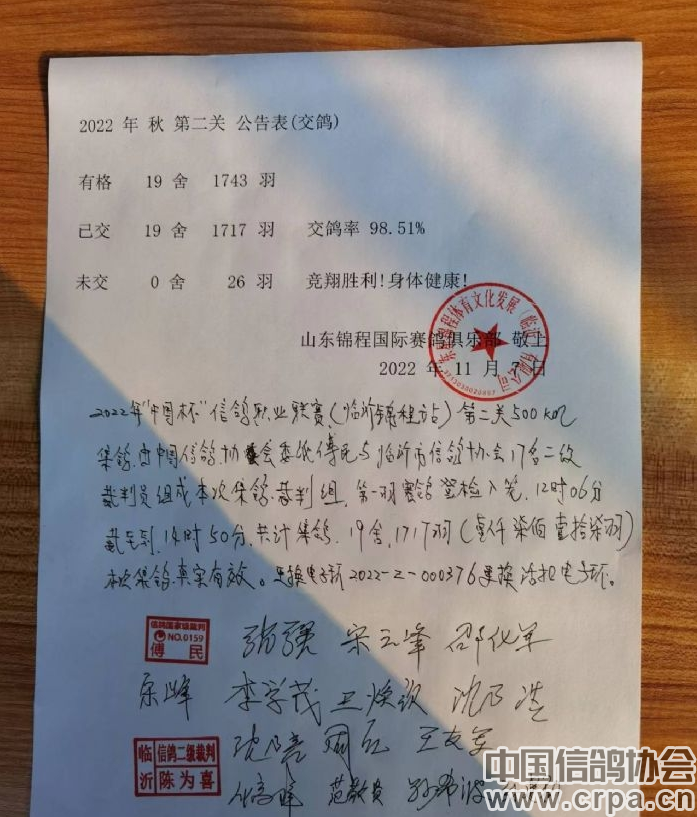 2022 年 秋 第二关 公告表(交鸽)
有格 19 舍 1743 羽
已交 19 舍 1717 羽 交鸽率 98.51%
未交 0 舍 26 羽 竞翔胜利!身体健康!
山东锦程国际赛鸽俱乐部 敬上
2022 年 11 月 7 日
2022年"中国杯"信鸽职业联赛(临沂锦程站)第二关500km
集鸽.由中国信鸽协会委派傅民与临沂市信鸽协会17名二级
裁判员组成本次集鸽裁判组,第一羽赛鸽登检入笼,12时06分
截至到,14时50分,共计集鸽,19舍,1717羽(壹仟柒佰壹拾柒羽)
本次集鸽真实有效。更换电子环2022-2-000376更换活扣电子环。
信鸽国家级裁判
NO.0159
傅民
张强 宋云峰 邵化军
李学茂
沈乃
临沂
信鸽二级裁判
陈为喜
王友军
范敬贵
中国信鸽协会
www.crpa.cn